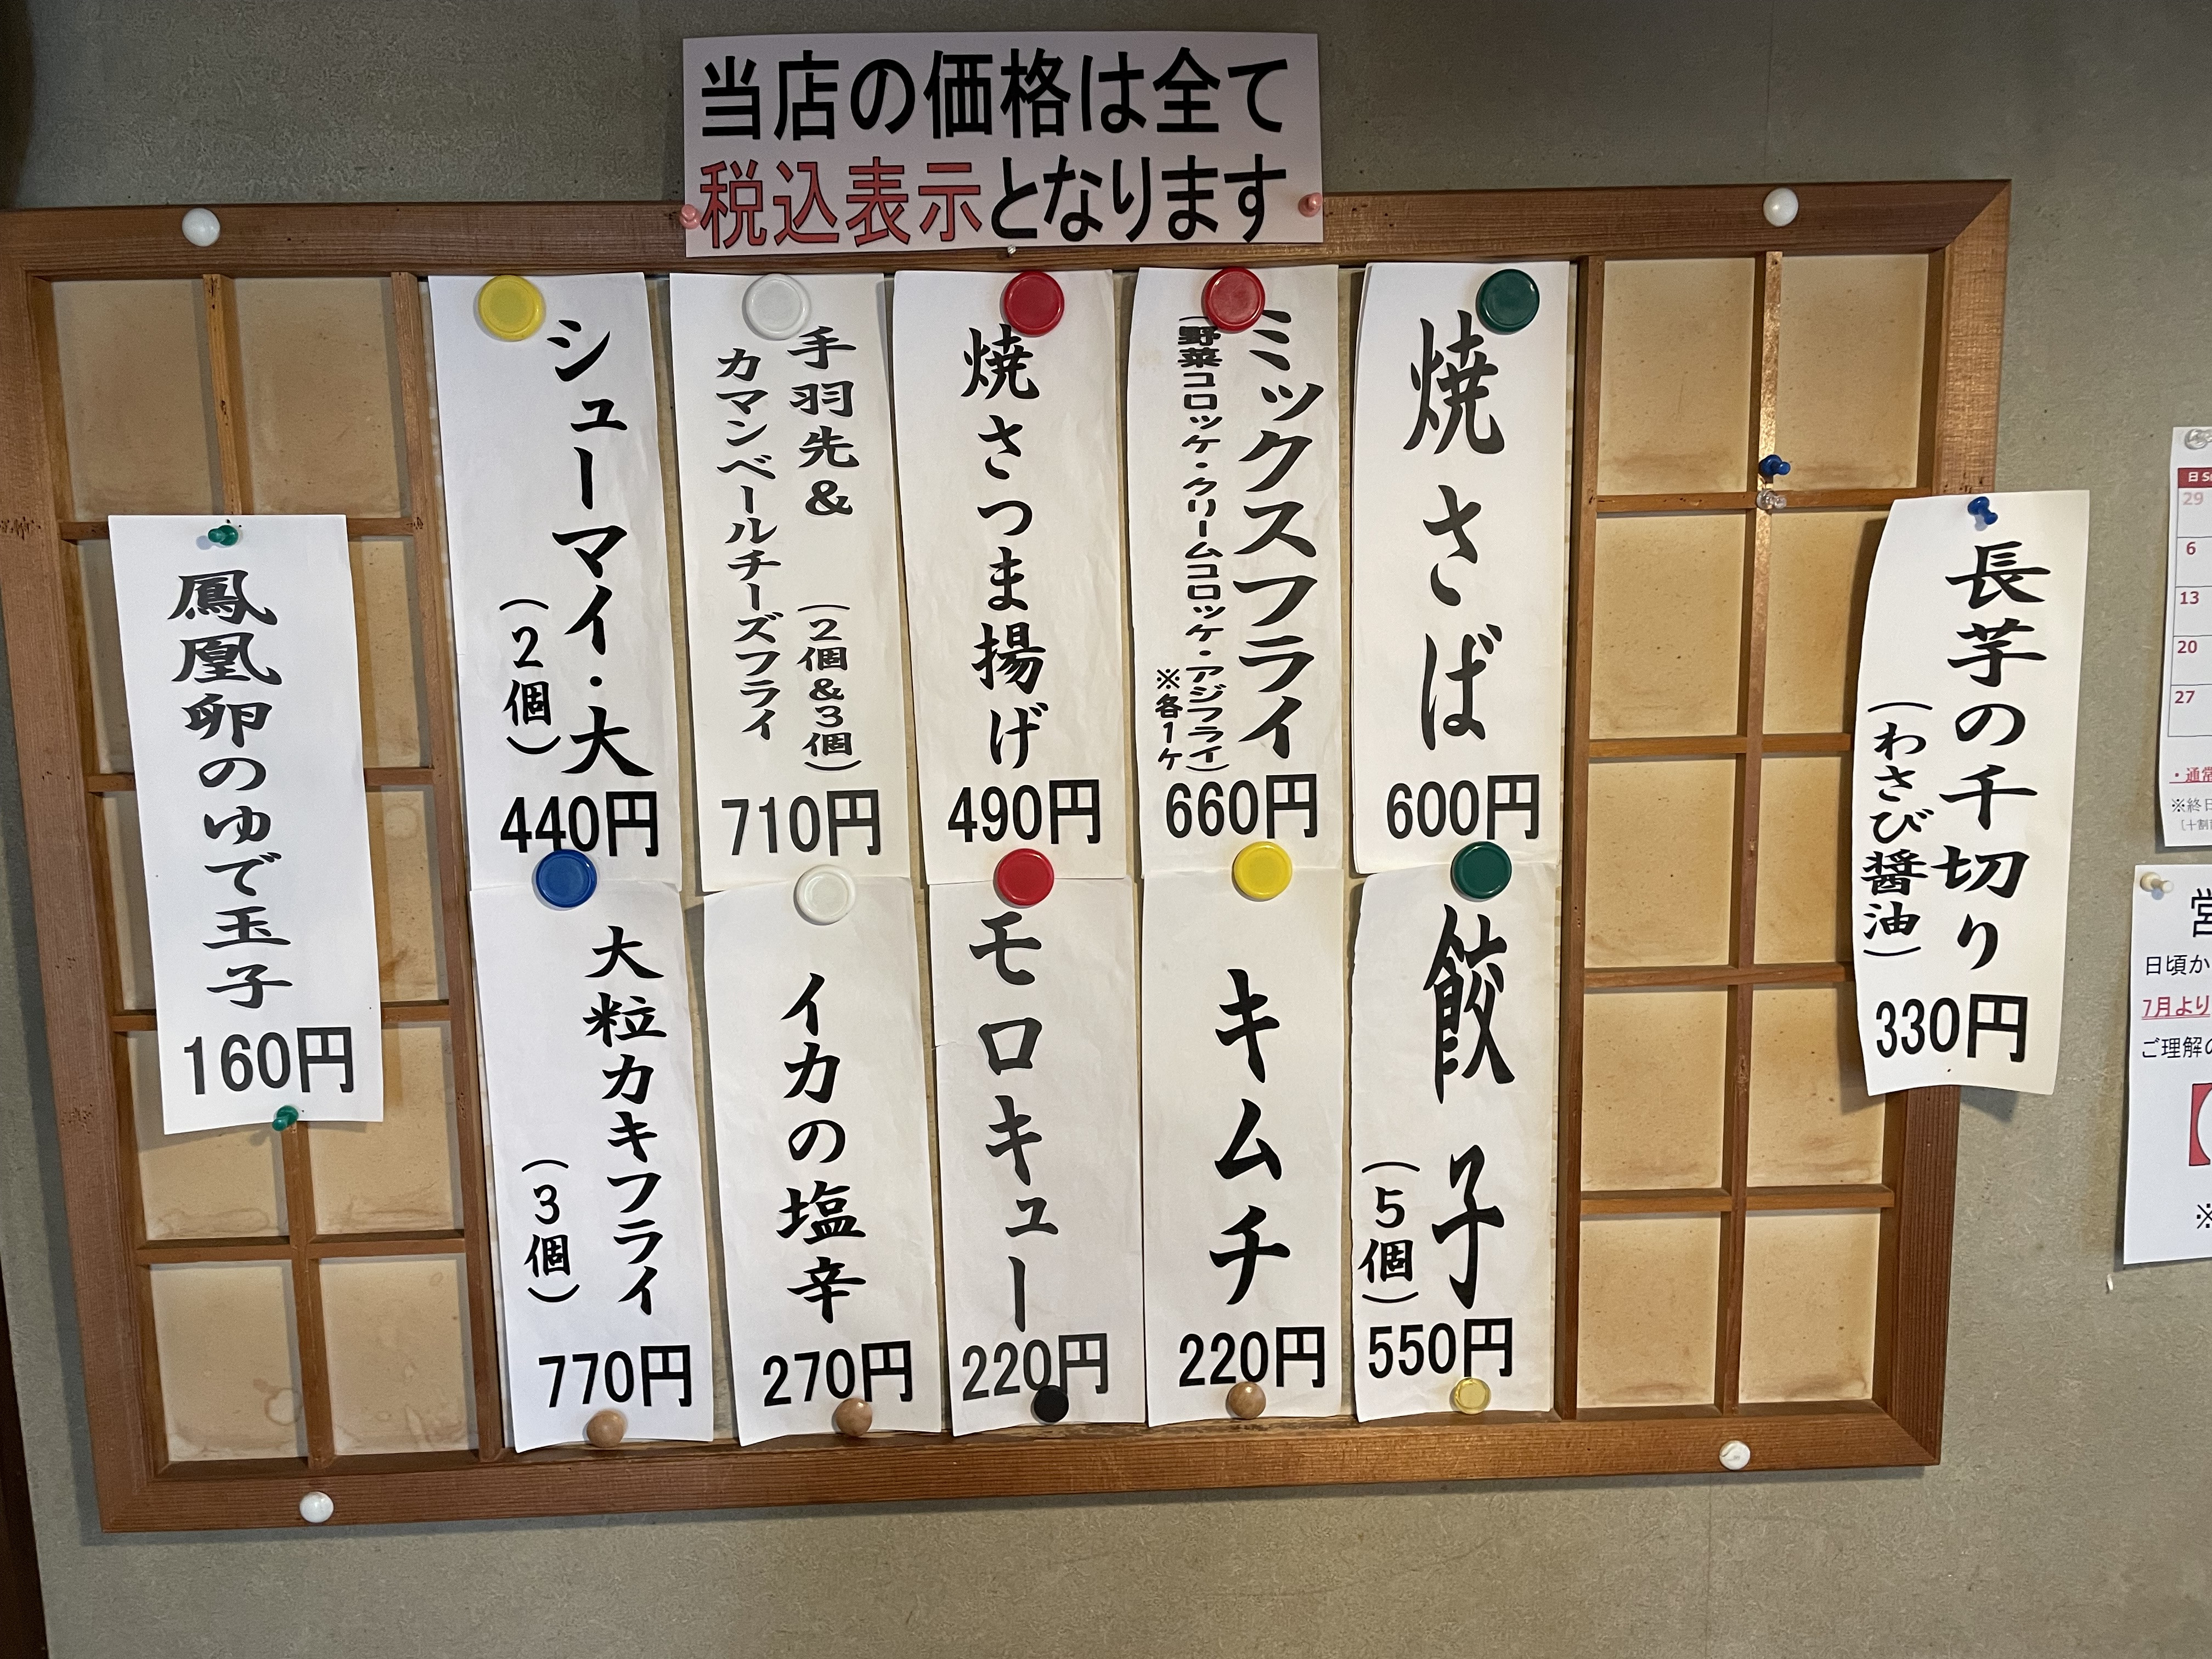 当店の価格は全て
税込表示となります
長芋の千切り
（わさび醤油）
330円
焼さば
600円
ミックスフライ
（野菜コロッケ・クリームコロッケ・アジフライ）
※各1ヶ
660円
焼さつま揚げ
490円
手羽先&（2個&3個）
カマンベールチーズフライ
710円
シューマイ・大
（2個）
440円
餃子
（5個）
550円
キムチ
220円
モロキュー
220円
イカの塩辛
270円
大粒カキフライ
（3個）
770円
鳳凰卵のゆで玉子
160円
日
29
6
13
20
27
・通常
※終日
営
日頃か
7月より
ご理解の
※